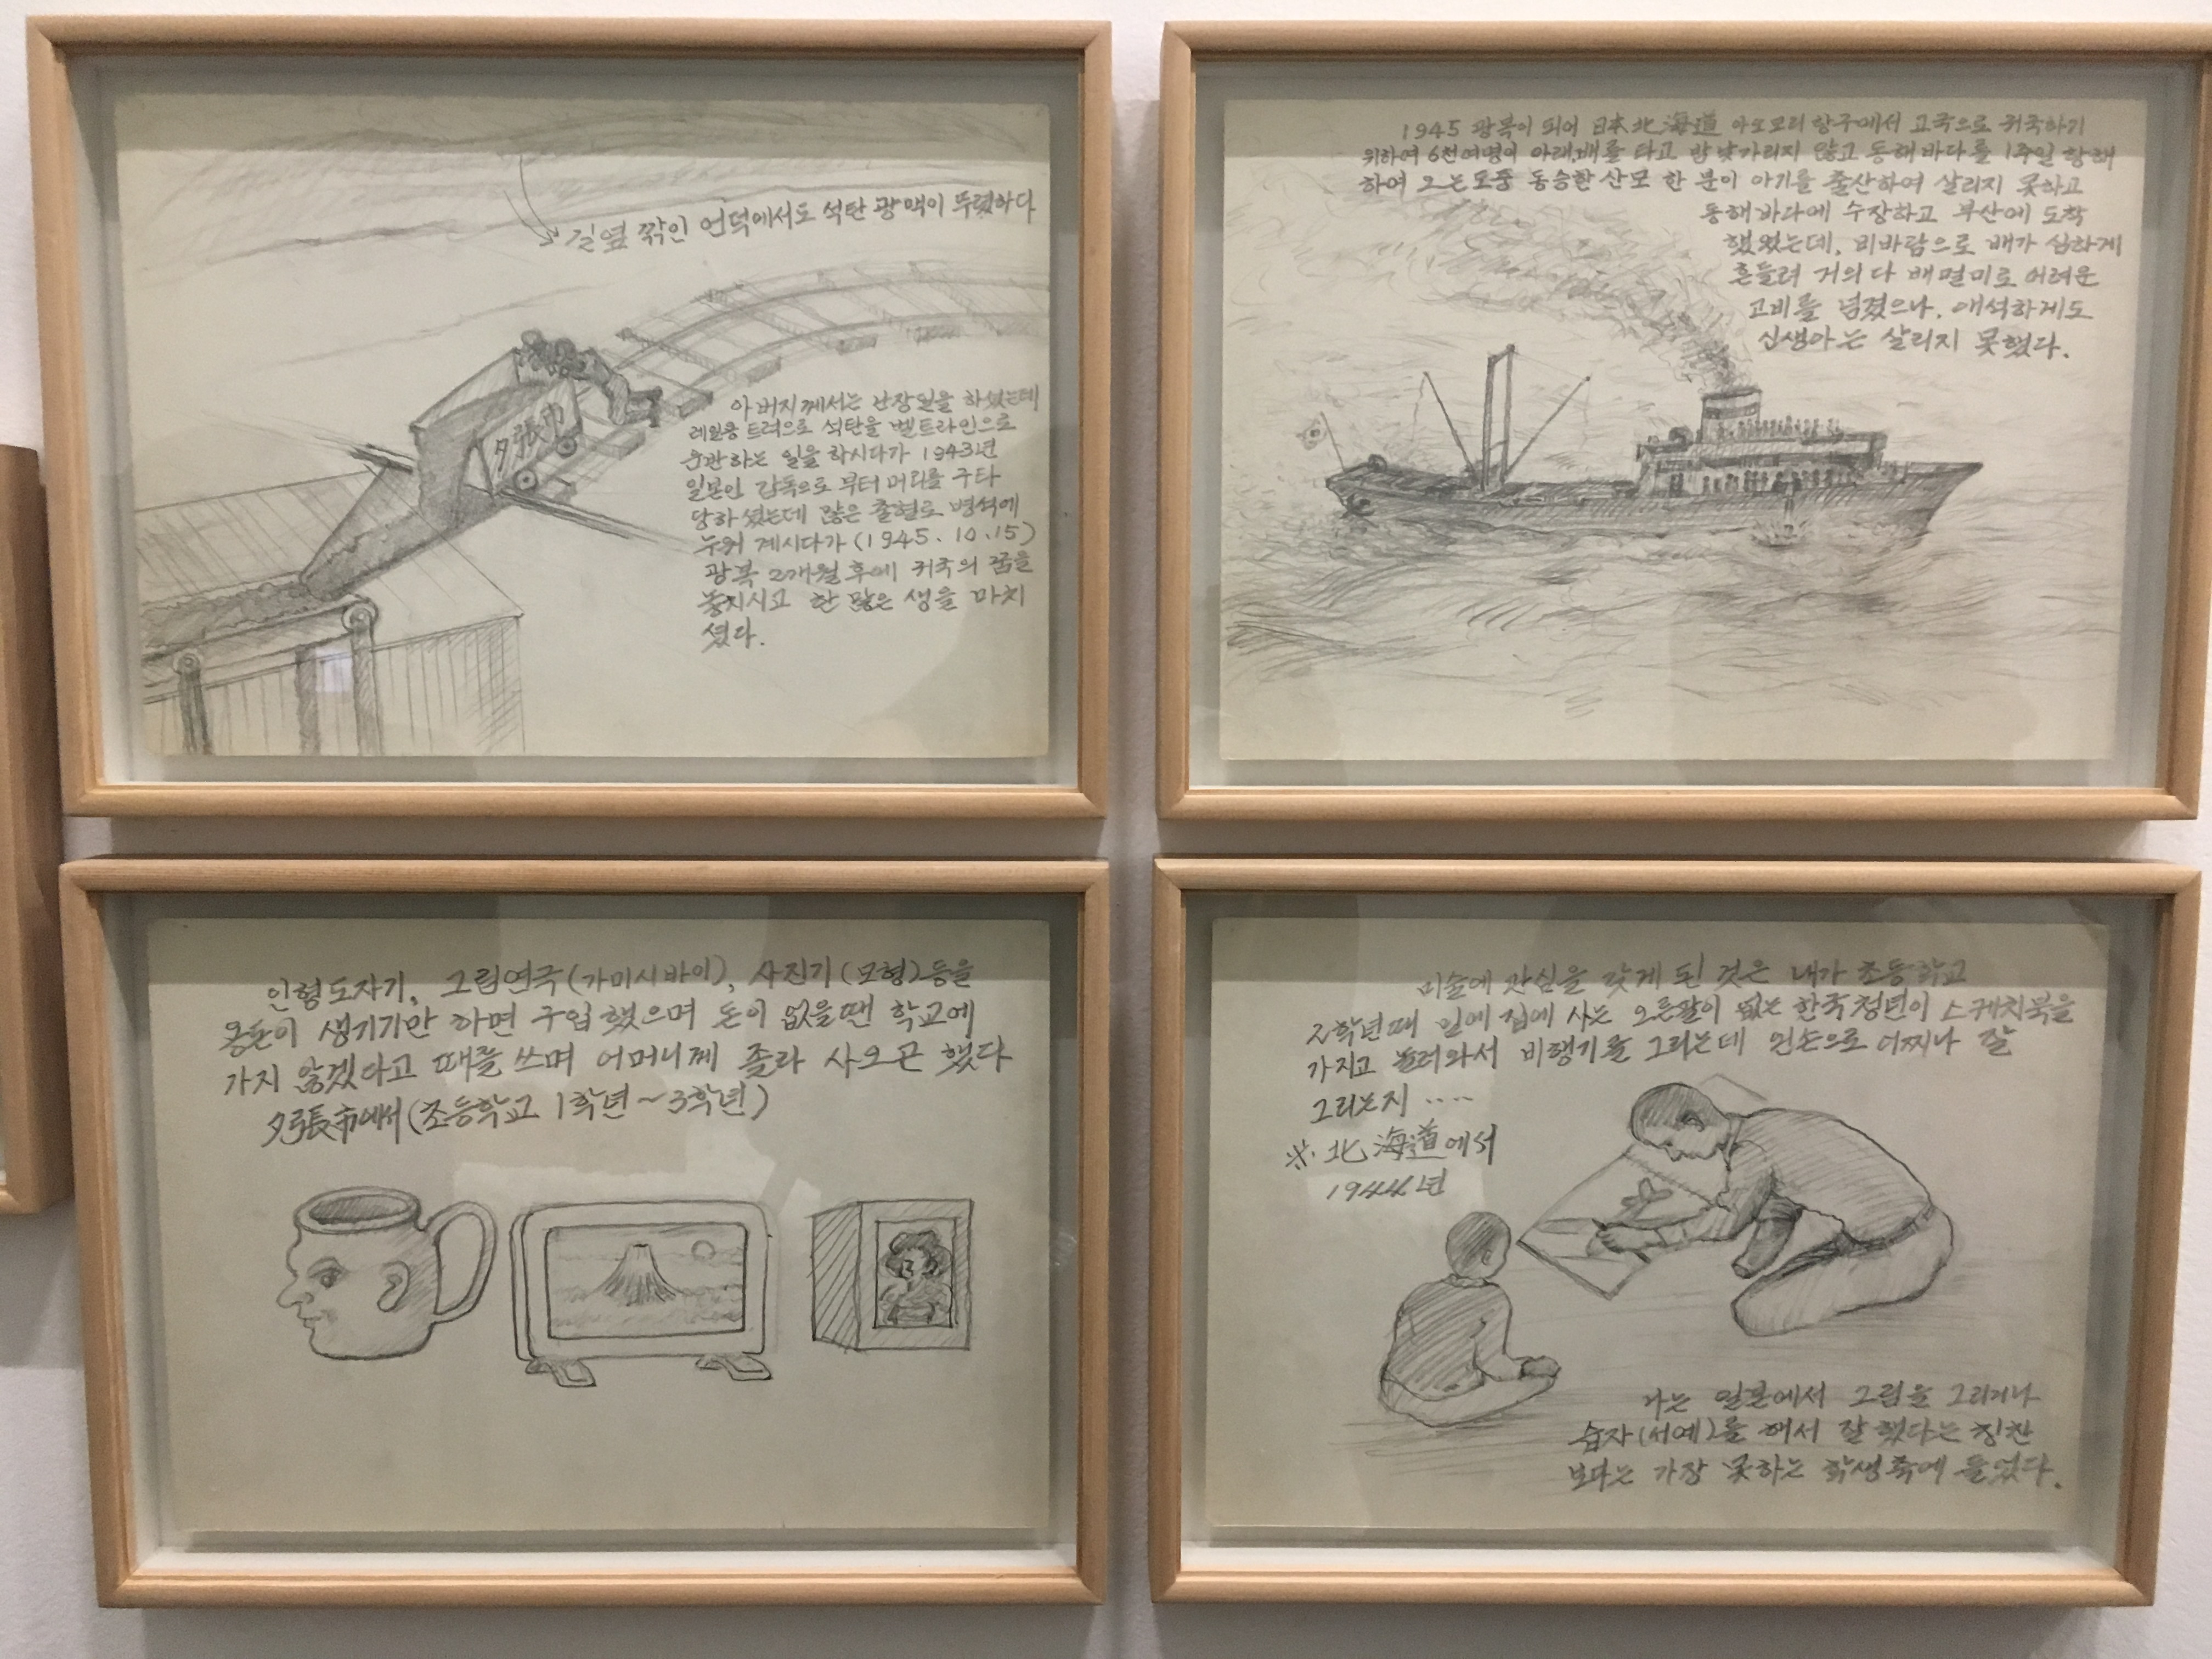 길옆 깎인 언덕에서도 석탄 광맥이 뚜렸하다
夕張市
아버지께서는 난장일을 하셨는데
레일용 트럭으로 석탄을 벨트라인으로
운반하는 일을 하시다가 1943년
일본인 감독으로 부터 머리를 구타
당하셨는데 많은 출혈로 병석에
누워 계시다가 (1945. 10. 15)
광복 2개월 후에 귀국의 꿈을
놓지시고 한 많은 생을 마치
셨다.
1945 광복이 되어 日本北海道 아오모리 항구에서 고국으로 귀국하기
위하여 6천여명이 아래,배를 타고 밤 낮가리지 않고 동해바다를 1주일 항해
하여 오는 도중 동승한 산모 한 분이 아기를 출산하여 살리지 못하고
동해바다에 수장하고 부산에 도착
했었는데, 비바람으로 배가 심하게
흔들려 거의 다 배멀미로 어려운
고비를 넘겼으나, 애석하게도
신생아는 살리지 못했다.
인형도자기, 그림연극(가미시바이), 사진기(모형)등을
용돈이 생기기만 하면 구입했으며 돈이 없을땐 학교에
가지 않겠다고 때를 쓰며 어머니께 졸라 사오곤 했다
夕張市에서(초등학교 1학년~3학년)
미술에 관심을 갖게 된 것은 내가 초등학교
2학년때 옆에 집에 사는 오른팔이 없는 한국청년이 스케치북을
가지고 놀러와서 비행기를 그리는데 왼손으로 어찌나 잘
그리는지 ....
※ 北海道에서
1944년
나는 일본에서 그림을 그리거나
습자(서예)를 해서 잘 했다는 칭찬
보다는 가장 못하는 학생축에 들었다.